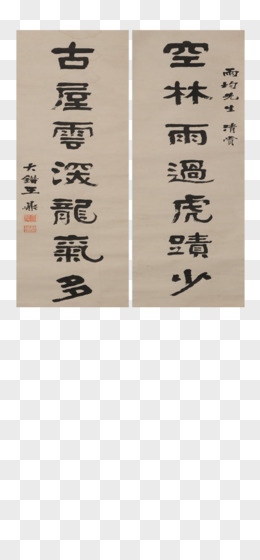 雨均先生 清賞
空林雨過虎蹟少
古屋雲深龍氣多